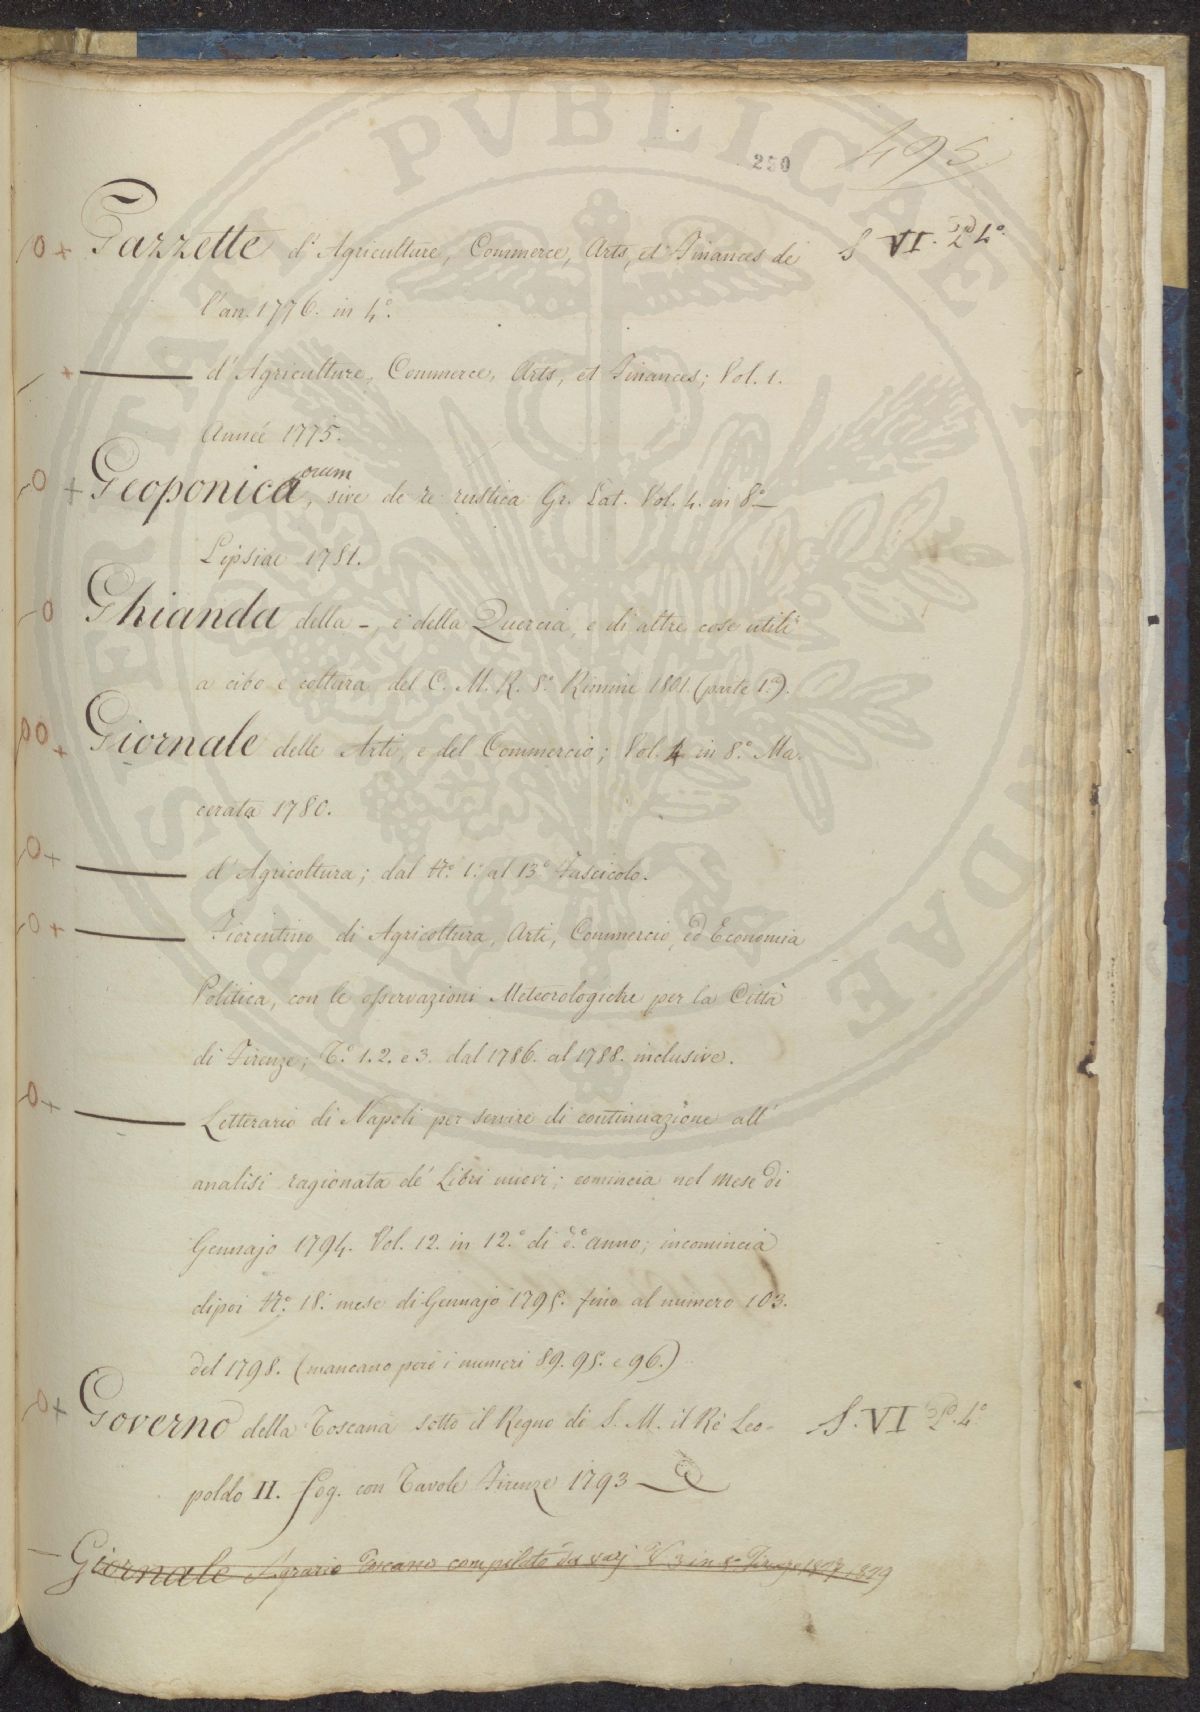 250
495
Gazzette d'Agriculture, Commerce, Arts, et Finances de S VI. 4.º
l'an. 1776. in 4.º
d'Agriculture, Commerce, Arts, et Finances; Vol. 1.
Anneé 1775.
Geoponica orum, sive de re rustica Gr. Lat. Vol. 4. in 8.º
Lipsiae 1781.
Ghianda della -, e della Quercia, e di altre cose utili
a cibo e coltura del C. M. R. 8.º Rimini 1801. (parte 1.ª).
Giornale delle Arti, e del Commercio; Vol. 4 in 8.º Ma.
cerata 1780.
d'Agricoltura; dal N.º 1.º al 13.º Fascicolo.
Fiorentino di Agricoltura, Arti, Commercio, ed Economia
Politica, con le osservazioni Meteorologiche per la Città
di Firenze; T.º 1. 2. e 3. dal 1786. al 1788. inclusive.
Letterario di Napoli per servire di continuazione all'
analisi ragionata de' Libri nuovi; comincia nel mese di
Gennajo 1794. Vol. 12. in 12.º di d.º anno; incomincia
dipoi N.º 18. mese di Gennajo 1795. fino al numero 103.
del 1798. (mancano però i numeri 89. 95. e 96.)
Governo della Toscana sotto il Regno di S. M. il Rè Leo- S. VI 4.º
poldo II. fog. con Tavole Firenze 1793
Giornale Agrario Toscano compilato da varj V. 3 in 8.º 1829
PUBLICAE